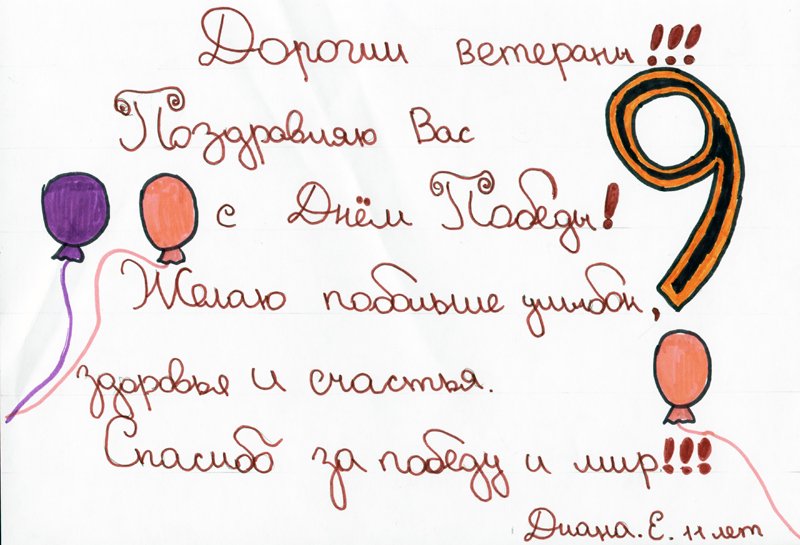 Дорогии ветераны!!!
Поздравляю Вас
с Днём Победы!
9
Желаю побольше улыбок,
здоровья и счастья.
Спасибо за победу и мир!!!
Диана. Е. 11 лет